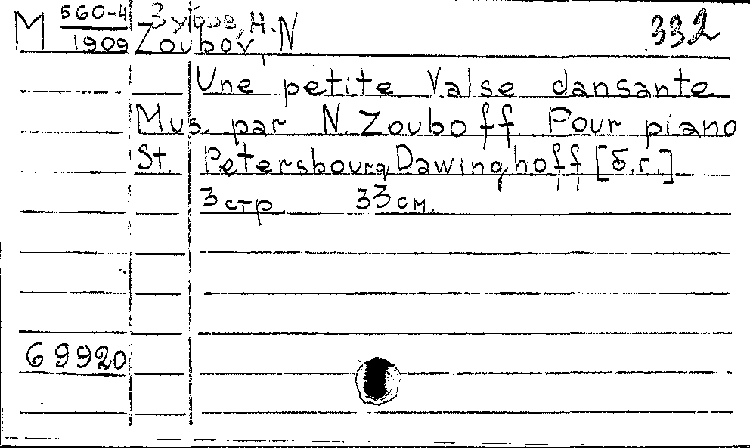 М 560-4 Зубов, Н. 332
1909 Zoubov, N
Une petite Valse dansante
Mus. par N. Zouboff Pour piano
St. Petersbourg, Dawinghoff [б.г.]
3 стр 33 см.
69920